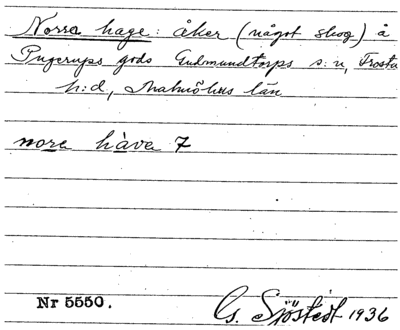 Norra hage: åker (något skog) å
Pugerups gods Gudmundtorps s:n, Frosta
h:d, Malmöhus län
nore hàva 7
Nr 5550.
G. Sjöstedt 1936